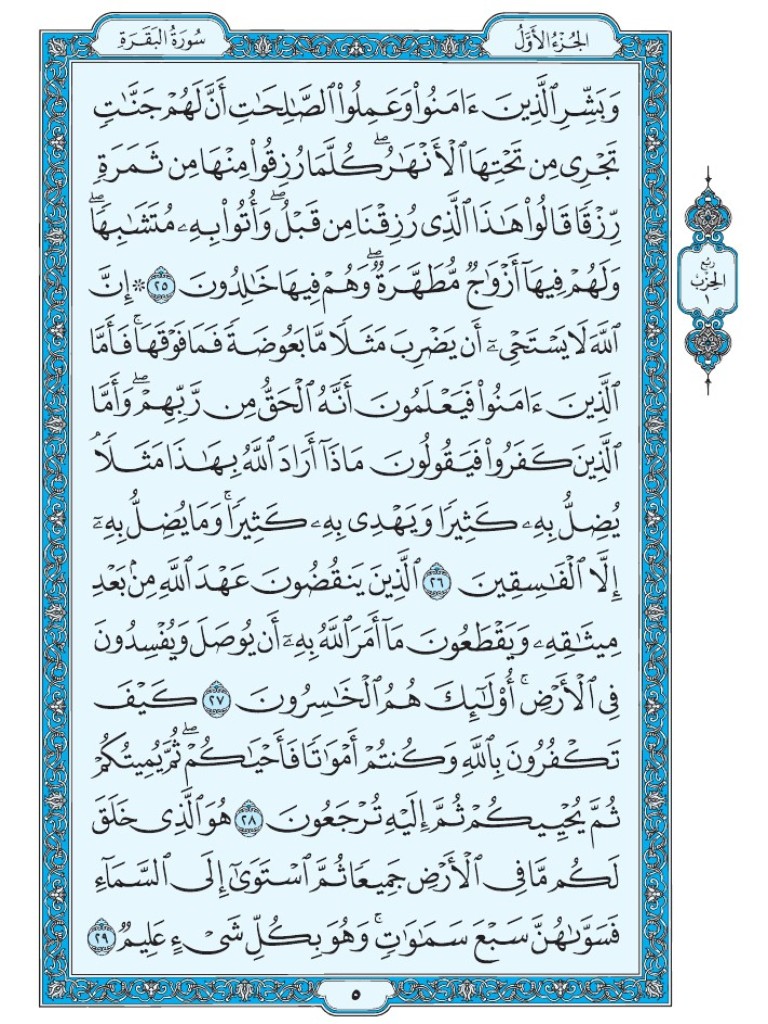 الجُزْءُ الأَوَّلُ
سُورَةُ البَقَرَةِ
وَبَشِّرِ ٱلَّذِينَ ءَامَنُوا۟ وَعَمِلُوا۟ ٱلصَّـٰلِحَـٰتِ أَنَّ لَهُمْ جَنَّـٰتٍ
تَجْرِى مِن تَحْتِهَا ٱلْأَنْهَـٰرُ ۖ كُلَّمَا رُزِقُوا۟ مِنْهَا مِن ثَمَرَةٍ
رِّزْقًا قَالُوا۟ هَـٰذَا ٱلَّذِى رُزِقْنَا مِن قَبْلُ ۖ وَأُتُوا۟ بِهِۦ مُتَشَـٰبِهًا ۖ
وَلَهُمْ فِيهَآ أَزْوَٰجٌ مُّطَهَّرَةٌ ۖ وَهُمْ فِيهَا خَـٰلِدُونَ ٢٥ * إِنَّ
ٱللَّهَ لَا يَسْتَحْىِۦٓ أَن يَضْرِبَ مَثَلًا مَّا بَعُوضَةً فَمَا فَوْقَهَا ۚ فَأَمَّا
ٱلَّذِينَ ءَامَنُوا۟ فَيَعْلَمُونَ أَنَّهُ ٱلْحَقُّ مِن رَّبِّهِمْ ۖ وَأَمَّا
ٱلَّذِينَ كَفَرُوا۟ فَيَقُولُونَ مَاذَآ أَرَادَ ٱللَّهُ بِهَـٰذَا مَثَلًا ۘ
يُضِلُّ بِهِۦ كَثِيرًا وَيَهْدِى بِهِۦ كَثِيرًا ۚ وَمَا يُضِلُّ بِهِۦٓ
إِلَّا ٱلْفَـٰسِقِينَ ٢٦ ٱلَّذِينَ يَنقُضُونَ عَهْدَ ٱللَّهِ مِنۢ بَعْدِ
مِيثَـٰقِهِۦ وَيَقْطَعُونَ مَآ أَمَرَ ٱللَّهُ بِهِۦٓ أَن يُوصَلَ وَيُفْسِدُونَ
فِى ٱلْأَرْضِ ۚ أُو۟لَـٰٓئِكَ هُمُ ٱلْخَـٰسِرُونَ ٢٧ كَيْفَ
تَكْفُرُونَ بِٱللَّهِ وَكُنتُمْ أَمْوَٰتًا فَأَحْيَـٰكُمْ ۖ ثُمَّ يُمِيتُكُمْ
ثُمَّ يُحْيِيكُمْ ثُمَّ إِلَيْهِ تُرْجَعُونَ ٢٨ هُوَ ٱلَّذِى خَلَقَ
لَكُم مَّا فِى ٱلْأَرْضِ جَمِيعًا ثُمَّ ٱسْتَوَىٰٓ إِلَى ٱلسَّمَآءِ
فَسَوَّىٰهُنَّ سَبْعَ سَمَـٰوَٰتٍ ۚ وَهُوَ بِكُلِّ شَىْءٍ عَلِيمٌ ٢٩
رُبْع
الحِزْبِ
١
٥